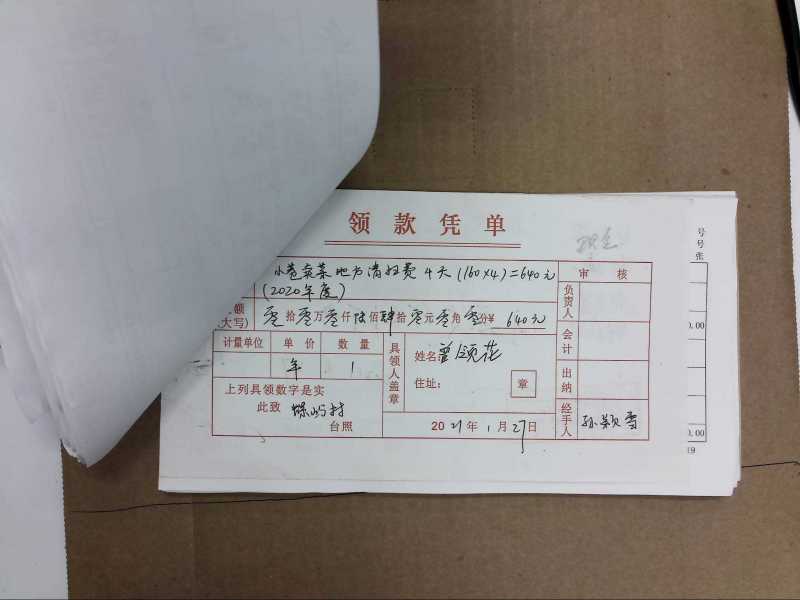 领款凭单
现金
小巷卖菜地方清扫费 4天(160×4)=640元
(2020年度)
额
(大写) 零拾零万零仟陆佰肆拾零元零角零分¥ 640元
计量单位 单价 数量
年 1
上列具领数字是实
此致
台照
具领人盖章
姓名: 曾领花
住址: 章
2021年1月27日
审核
负责人
会计
出纳
经手人 孙颖雪
号
号
张
0.00
0.00
19